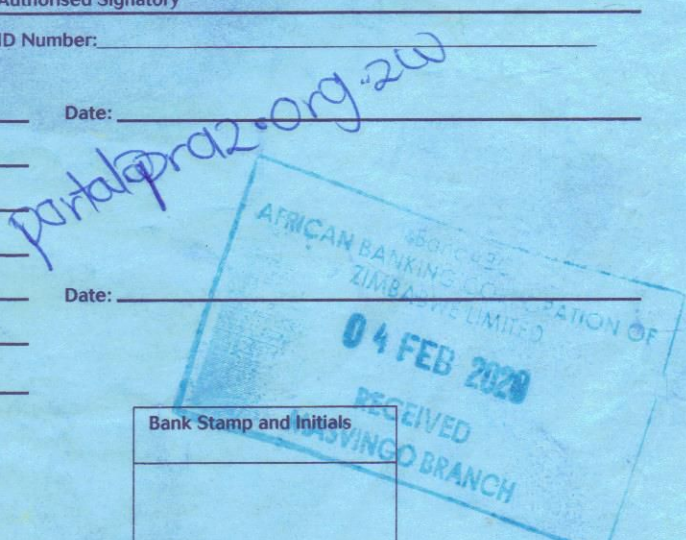 Authorised Signatory
ID Number:
Date:
portal@praz.org.zw
AFRICAN BANKING CORPORATION OF
ZIMBABWE LIMITED
Date:
04 FEB
RECEIVED
MASVINGO BRANCH
Bank Stamp and Initials